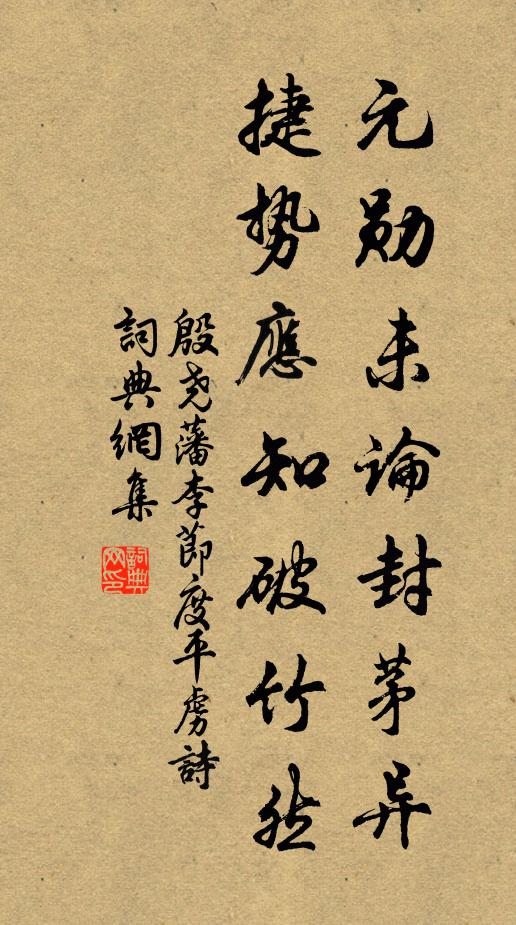 元勋未論封茅异
捷势應知破竹然
殷尧藩李節度平虏詩
詞典網集
詞典網印